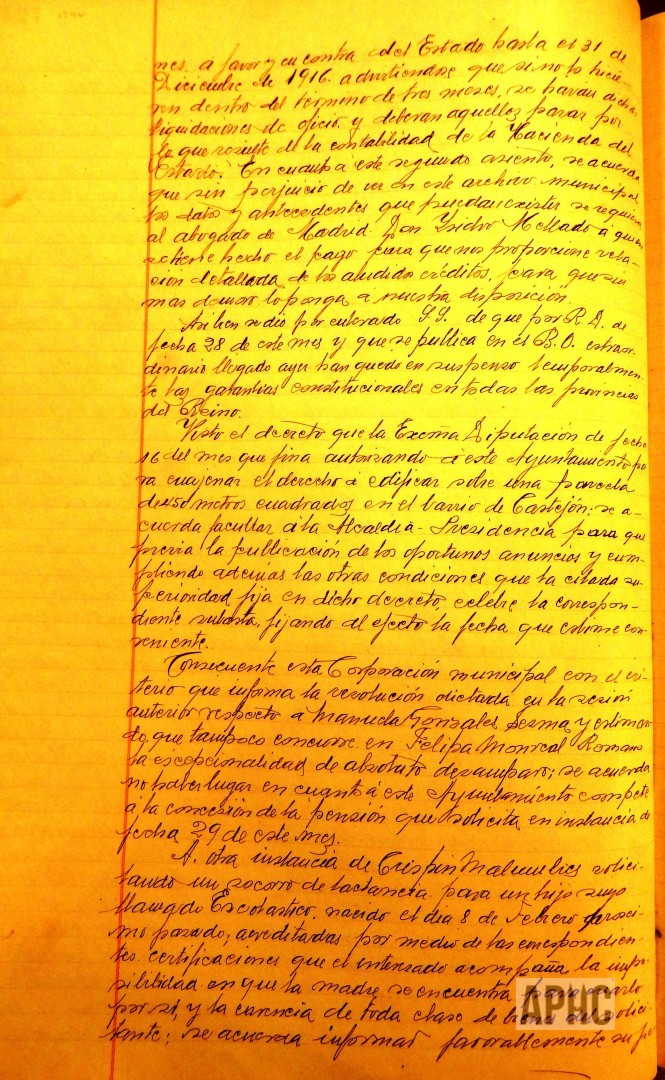 nes, a favor y en contra del Estado hasta el 31 de
Diciembre de 1916 advirtiendose que si no lo hicie
ren dentro del término de tres meses, se haran dichas
liquidaciones de oficio y deberan aquellos pasar por
lo que resulte de la contabilidad de la Hacienda del
Estado. En cuanto a este segundo asiento, se acuerda
que sin perjuicio de ver en este archivo municipal
los datos y antecedentes que puedan existir se requiera
al abogado de Madrid Don Ysidro Mellado á quien
se tiene hecho el pago para que nos proporcione rela-
cion detallada de los aludidos créditos, para que sin
mas demora lo ponga a nuestra disposición.
Asi bien se dió por enterado S.S. de que por R.D. de
fecha 28 de este mes y que se publica en el B.O. extraor
dinario llegado ayer han quedo en suspenso temporalmen-
te las garantias constitucionales en todas las provincias
del Reino.
Visto el decreto que la Excma Diputación de fecha
16 del mes que fina autorizando á este Ayuntamiento pa
ra enajenar el derecho á edificar sobre una parcela
de 450 metros cuadrados en el barrio de Castejón; se a-
cuerda facultar á la Alcaldia-Presidencia para que
previa la publicación de los oportunos anuncios y cum-
pliendo ademas las otras condiciones que la citada su-
perioridad fija en dicho decreto, celebre la correspon-
diente subasta, fijando al efecto la fecha que estime con-
veniente.
Consecuente esta Corporación municipal con el cri-
terio que informa la resolución dictada en la sesion
anterior respecto á Manuela Gonzales Sesma y estiman
do, que tampoco concurre en Felipa Monreal Romano
la escepcionalidad de absoluto desamparo; se acuerda
no haber lugar en cuanto á este Ayuntamiento compete
á la concesión de la pensión que solicita en instancia de
fecha 29 de este mes.
A otra instancia de Crispin solici-
tando un socorro de lactancia para un hijo suyo
llamado Escolastico, nacido el dia 8 de Febrero proxi-
mo pasado, acreditadas por medio de las correspondien-
tes certificaciones que el interesado acompaña la impo
sibilidad en que la madre se encuentra para criarlo
por si, y la carencia de toda clase de bienes del solici-
tante; se acuerda informar favorablemente su
APHC